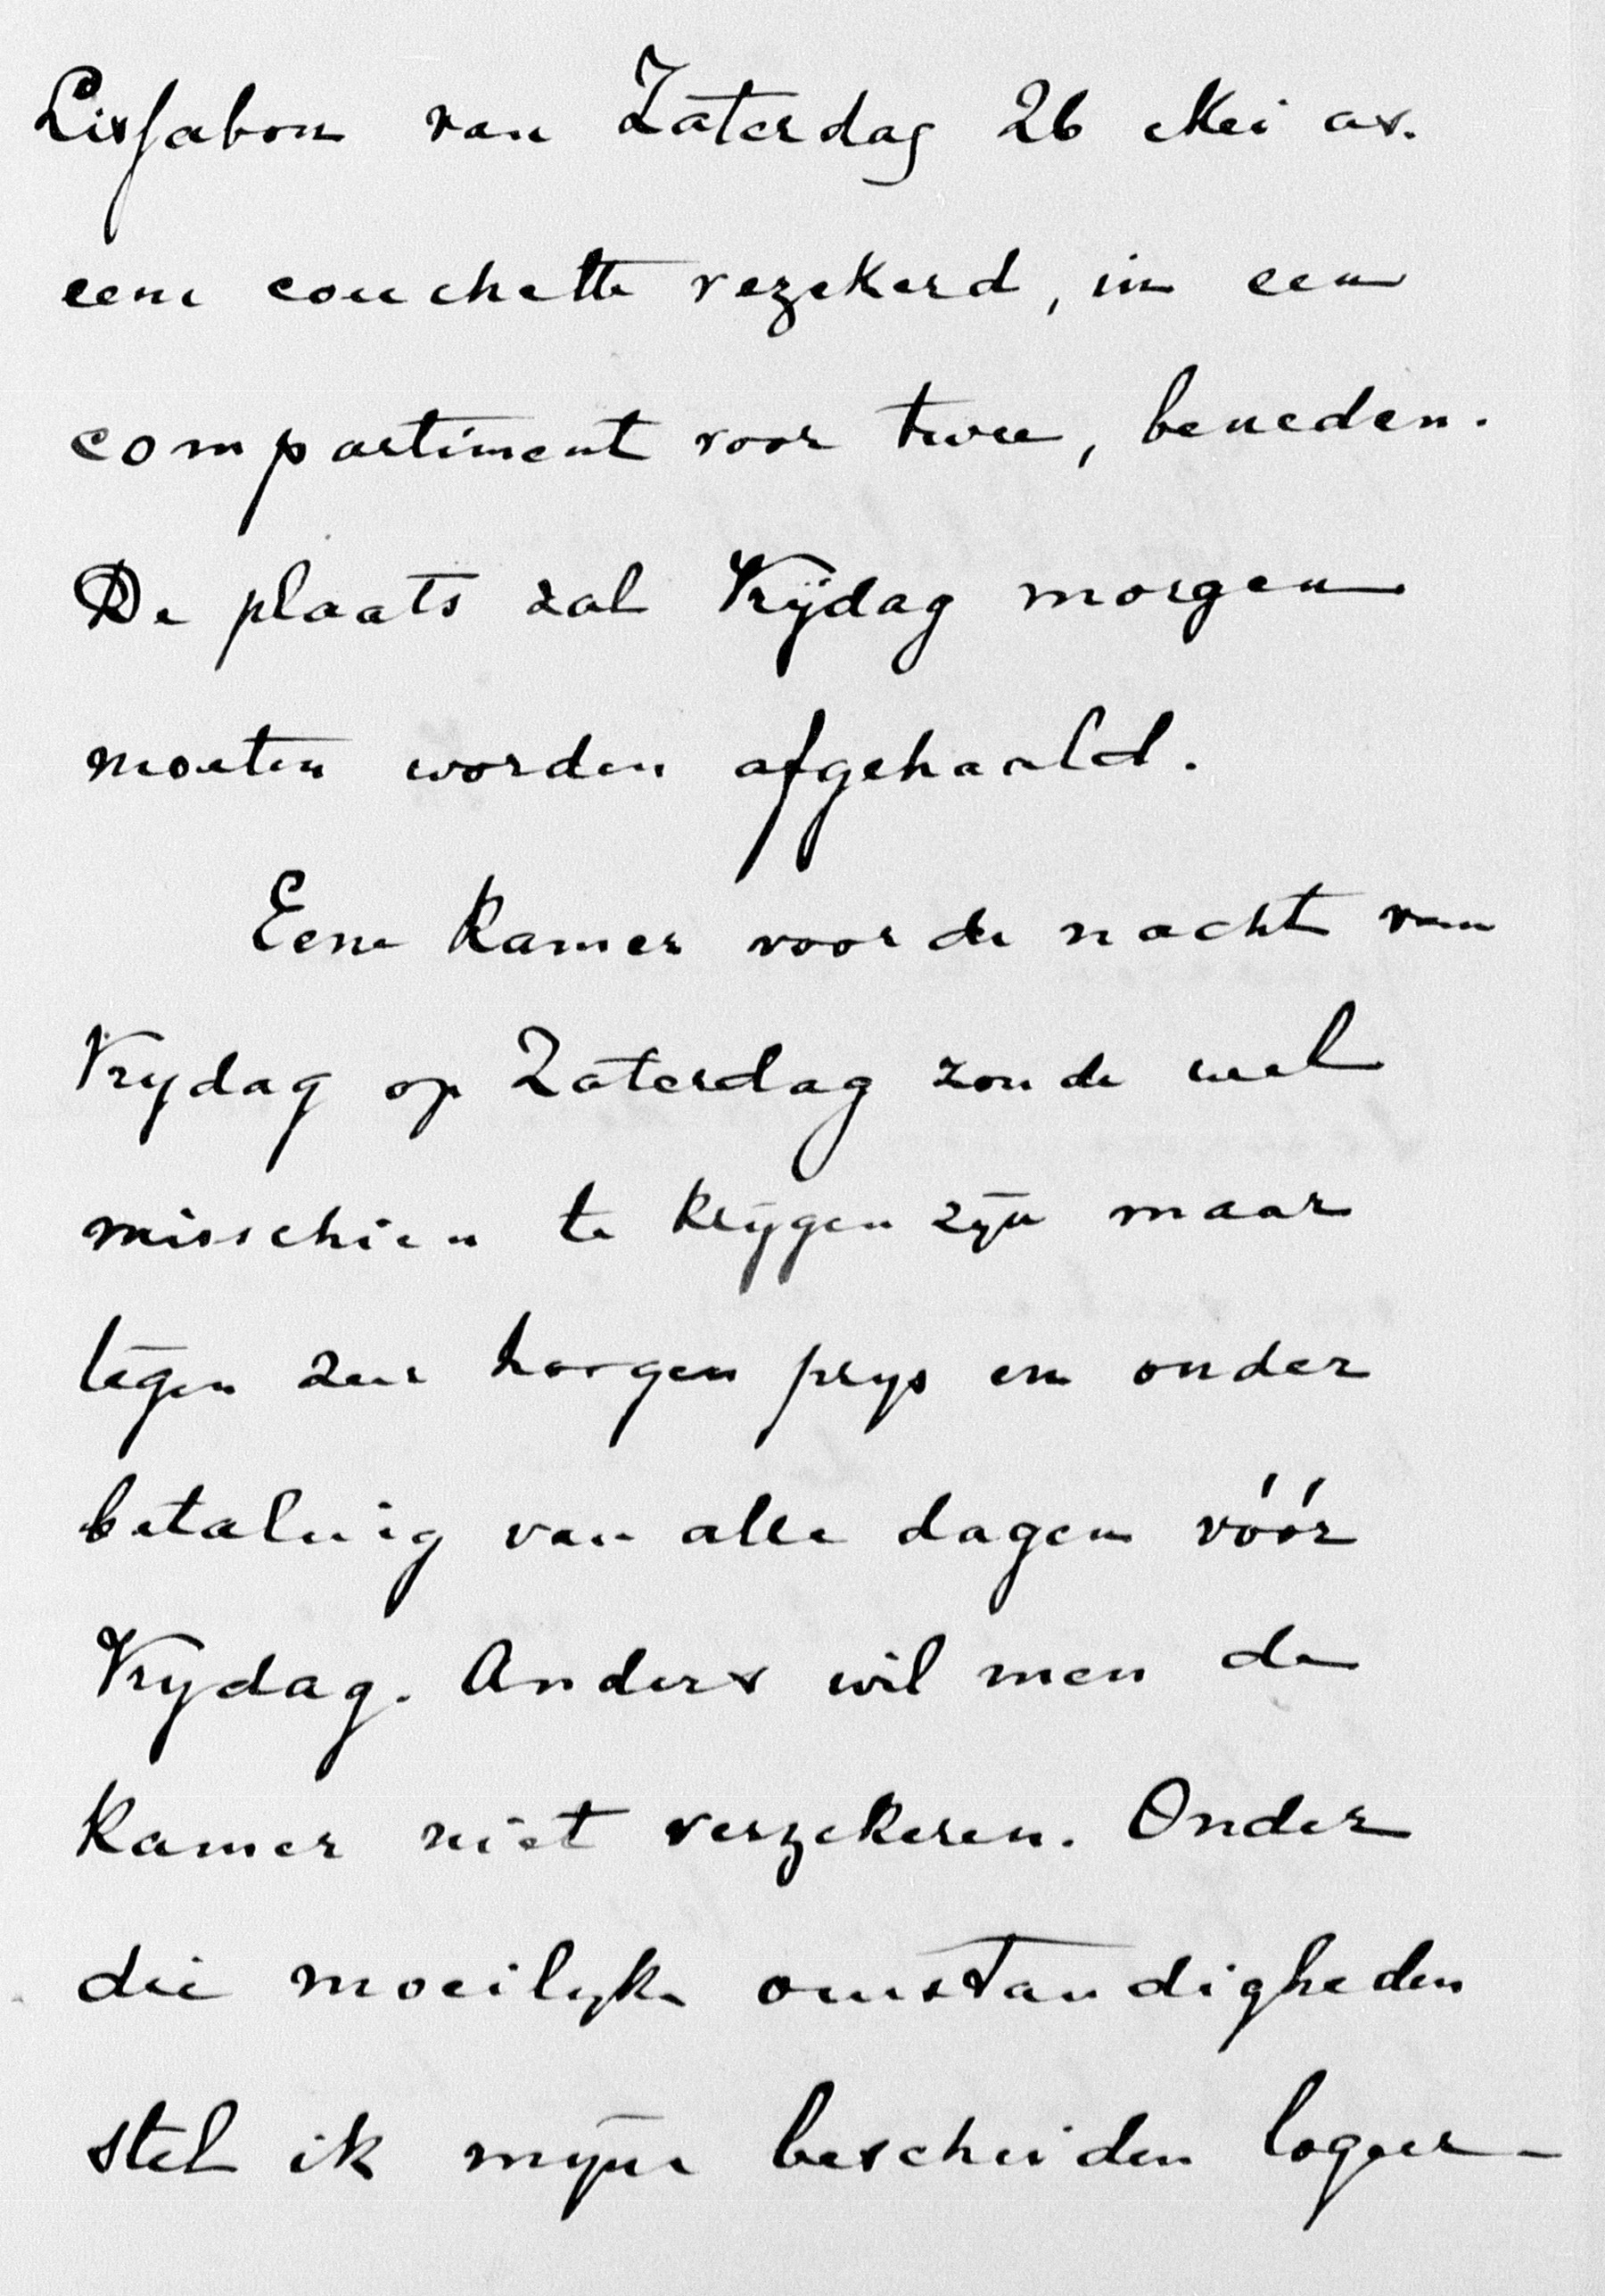 Lissabon van Zaterdag 26 Mei as.
eene couchette vezekerd, in een
compartiment voor twee, beneden.
De plaats zal Vrijdag morgen
moeten worden afgehaald.
Eene kamer voor de nacht van
Vrydag op Zaterdag zoude wel
misschien te krijgen zijn maar
tegen zeer hoogen prys en onder
betaling van alle dagen vóór
Vrydag. Anders wil men de
kamer niet verzekeren. Onder
die moeilyke omstandigheden
stel ik myne bescheiden logeer-